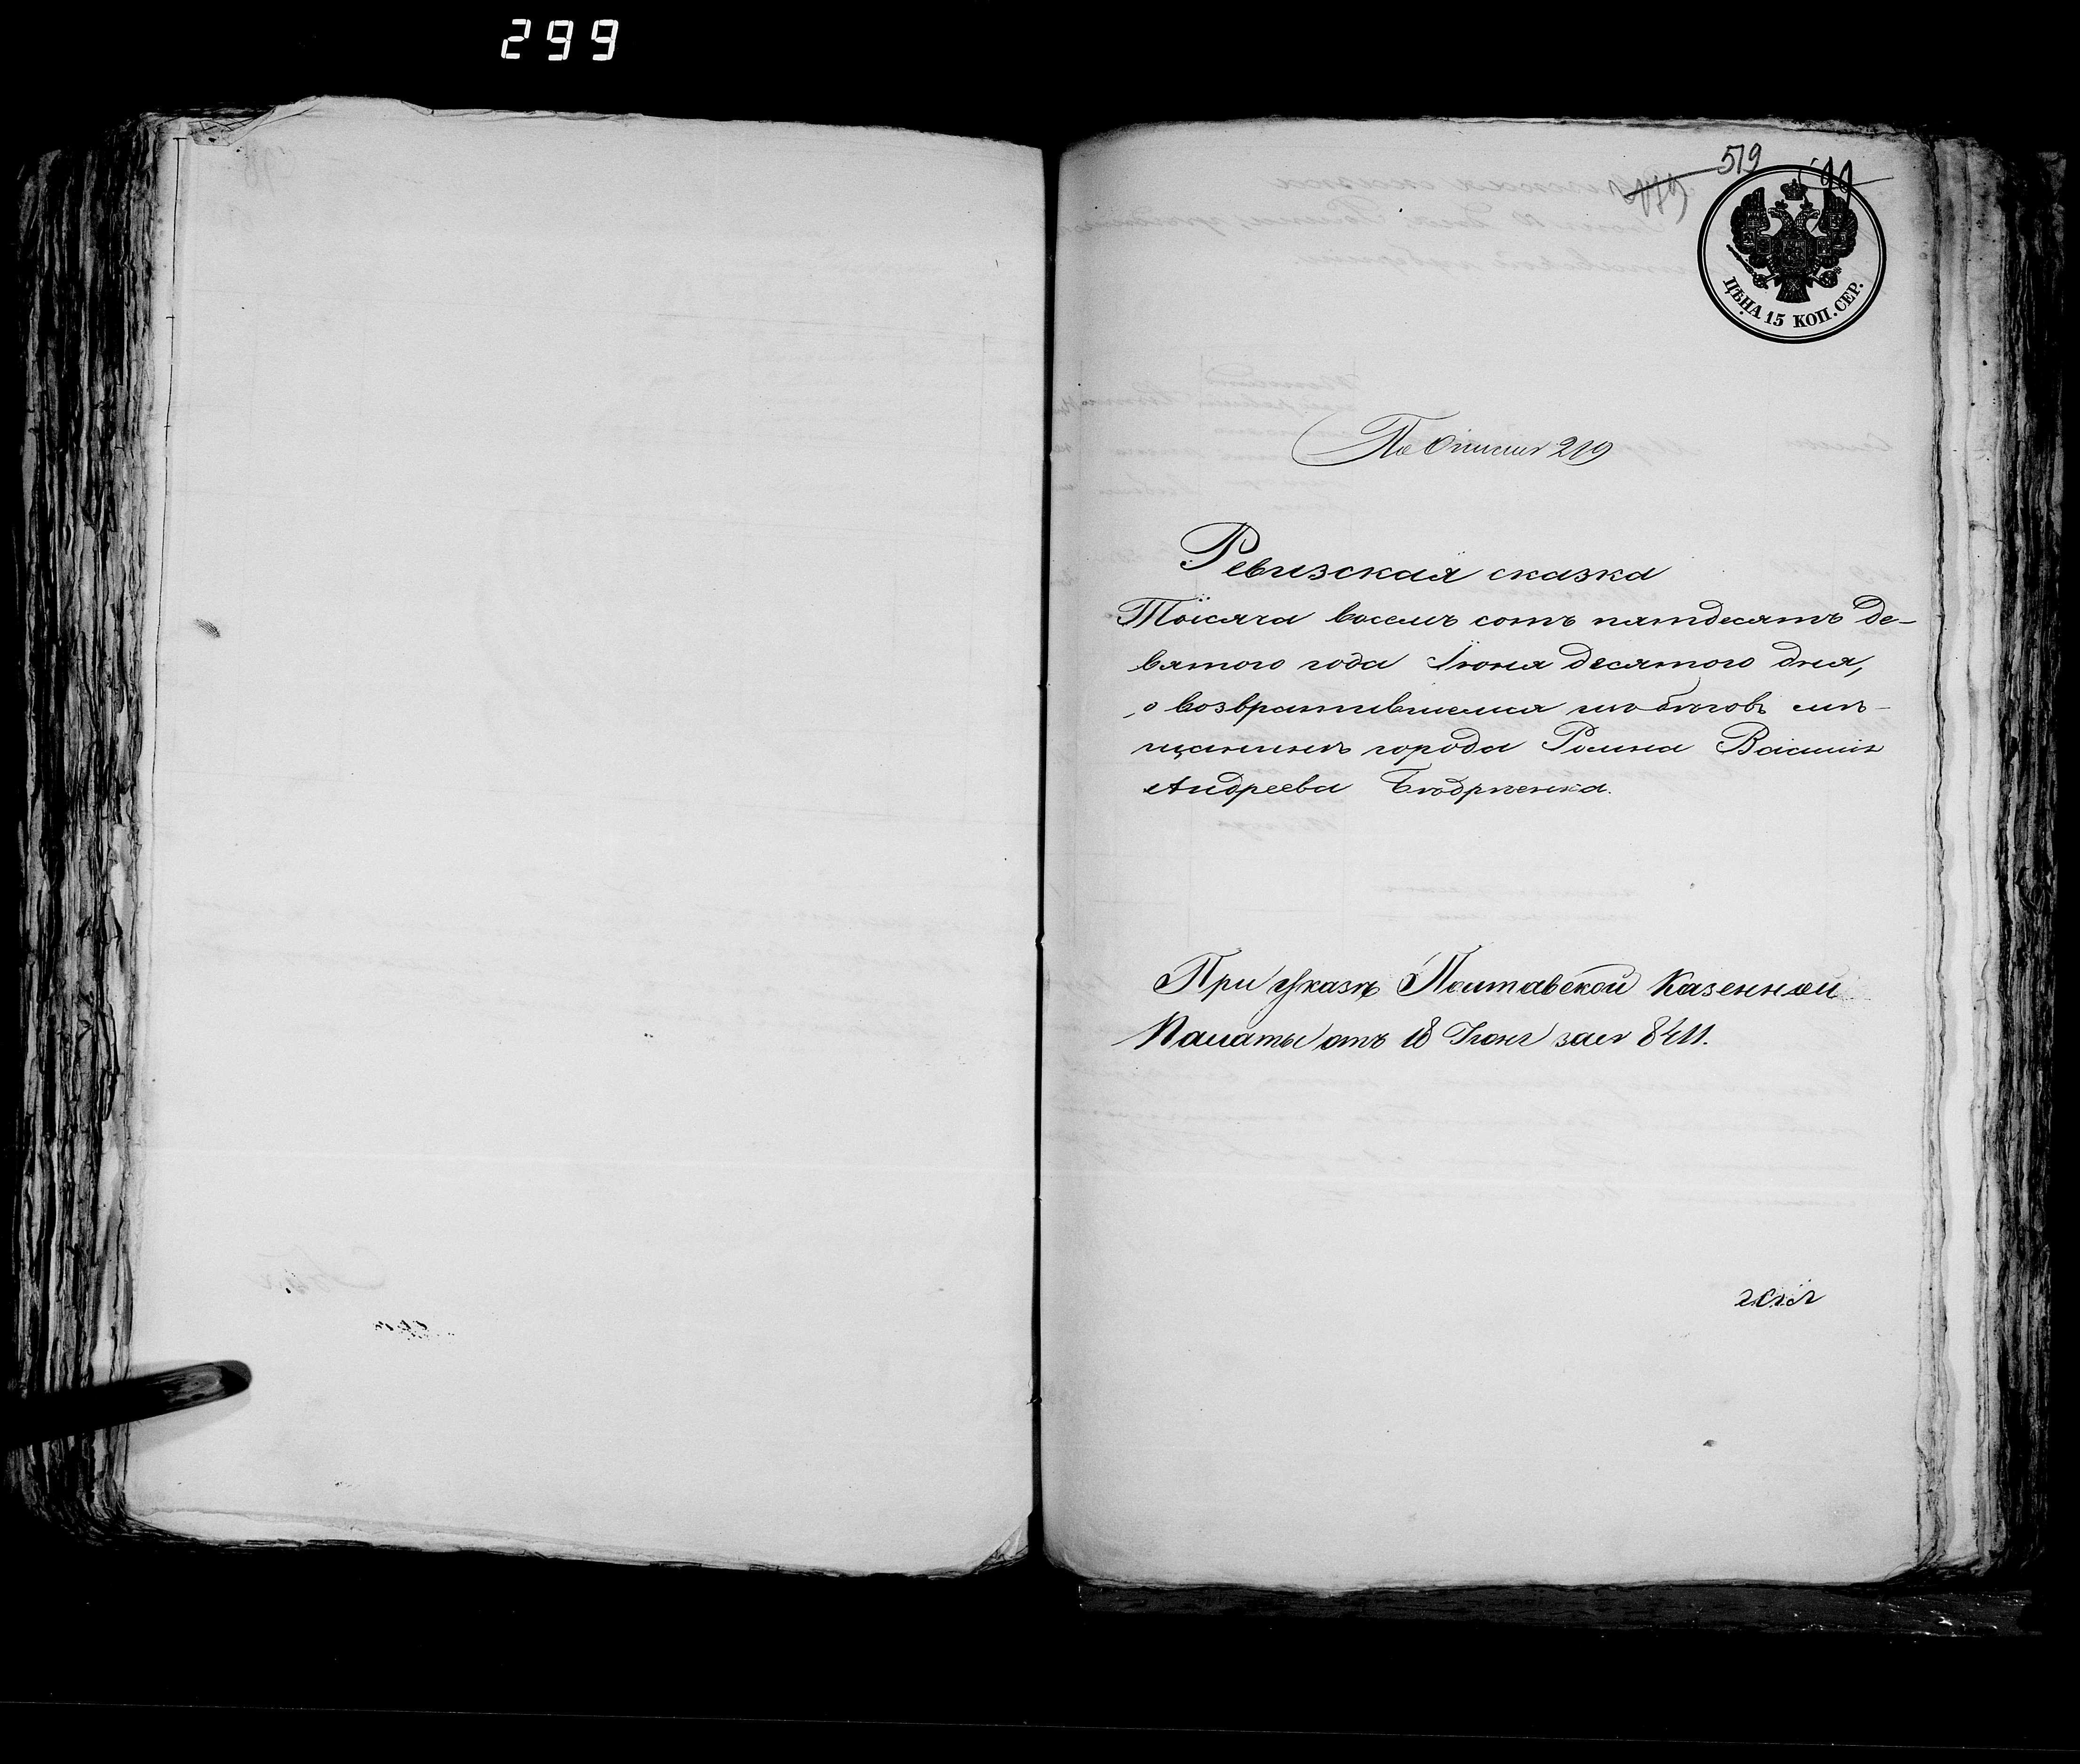 299
519
ЦѢНА 15 КОП. СЕР.
По Описи № 219
Ревизская сказка
Тысяча восемь сотъ пятдесятъ де-
вятого года Іюня десятого дня,
о возвратившемся изъ бѣговъ мѣ-
щанинѣ города Ромна Василіѣ
Андреевѣ
При Указѣ Полтавской Казенной
Палаты отъ 18 Іюня за № 8411.